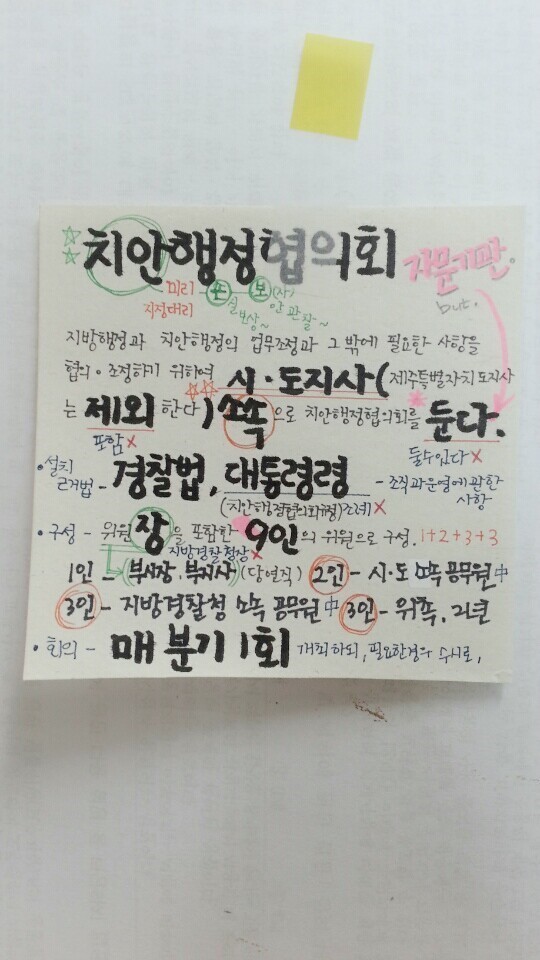 ☆☆ 치안행정협의회 자문기관.
but.
미리 손 보(사)
지정대리 실비상~ 안 관찰~
지방행정과 치안행정의 업무조정과 그 밖에 필요한 사항을
협의·조정하기 위하여 시·도지사(제주특별자치도지사
는 제외한다) 소속으로 치안행정협의회를 둔다.
포함× 둘수있다×
•설치근거법- 경찰법, 대통령령 - 조직과 운영에 관한 사항
(치안행정협의회규정)조례×
•구성- 위원장을 포함한 9인의 위원으로 구성. 1+2+3+3
지방경찰청장×
1인- 부시장, 부지사(당연직) 2인- 시·도 소속 공무원 中
3인- 지방경찰청 소속 공무원 中 3인- 위촉, 2년
•회의- 매 분기 1회 개최하되, 필요한경우 수시로.